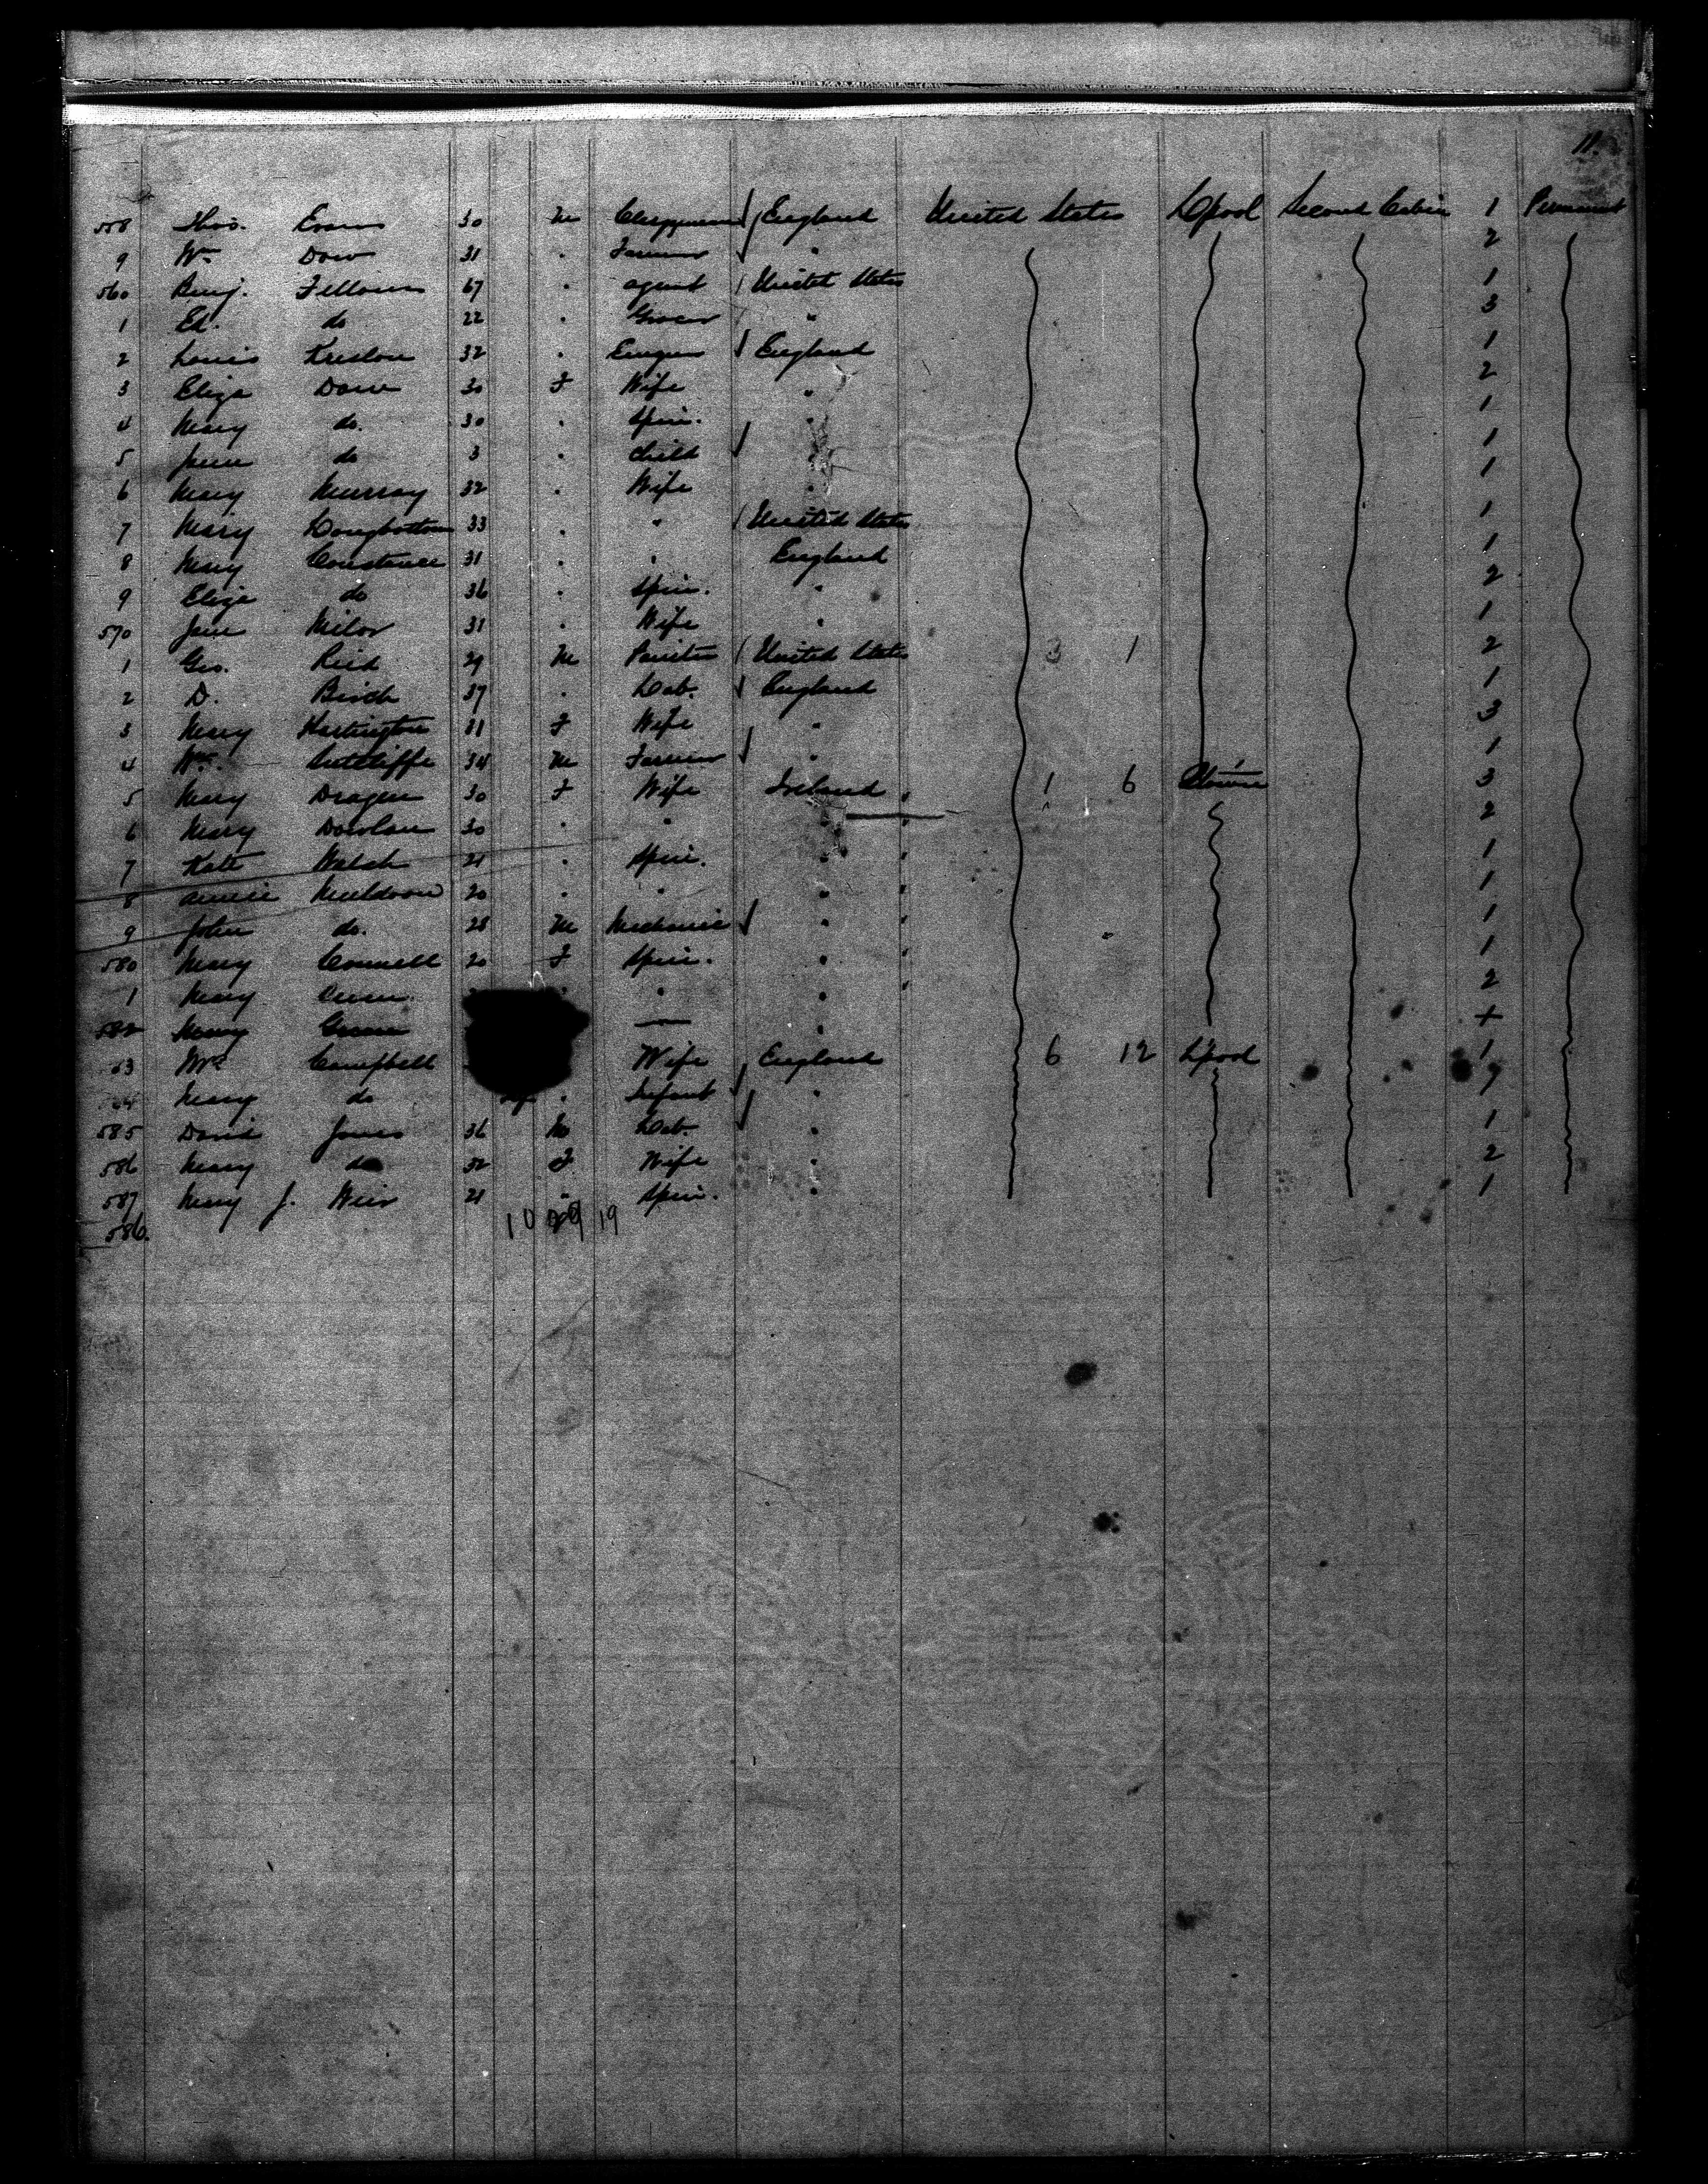 11.
558 Thos. Evans 30 M Clergyman England United States L'pool Second Cabin 1 Permanent
9 Wm Dow 31 " Farmer " 2
560 Benj. Fellows 67 " agent United States 1
1 Ed. do 22 " Grocer " 3
2 Louis 32 " England 1
3 Eliza Dow 30 F Wife " 2
4 Mary do. 30 " Spin. " 1
5 do 3 " Child " 1
6 Mary Murray 32 " Wife " 1
7 Mary Longbottom 33 " " United States 1
8 Mary Constance 31 " " England 1
9 Eliza do 36 " Spin. " 2
570 Jane 31 " Wife " 1
1 Geo. Reid 29 M Painter United States 3 1 2
2 D. Birch 37 " Lab. England 1
3 Mary Hartington 11 F Wife " 3
4 Wm. Sutcliffe 34 M Farmer " 1
5 Mary 30 F Wife Ireland " 1 6 3
6 Mary 30 " " " " 2
7 Kate Walsh 21 " Spin. " " 1
8 Annie Muldoon 20 " " " " 1
9 John do. 28 M Mechanic " " 1
580 Mary Connell 20 F Spin. " " 1
1 Mary " " " 2
582 — " +
83 Mrs Campbell Wife England 6 12 L'pool 1
Mary do " Infant "
585 David Jones 36 M Lab. " 1
586 Mary do 32 F Wife " 2
587 Mary J. Weir 21 " Spin. " 1
586. 10 19